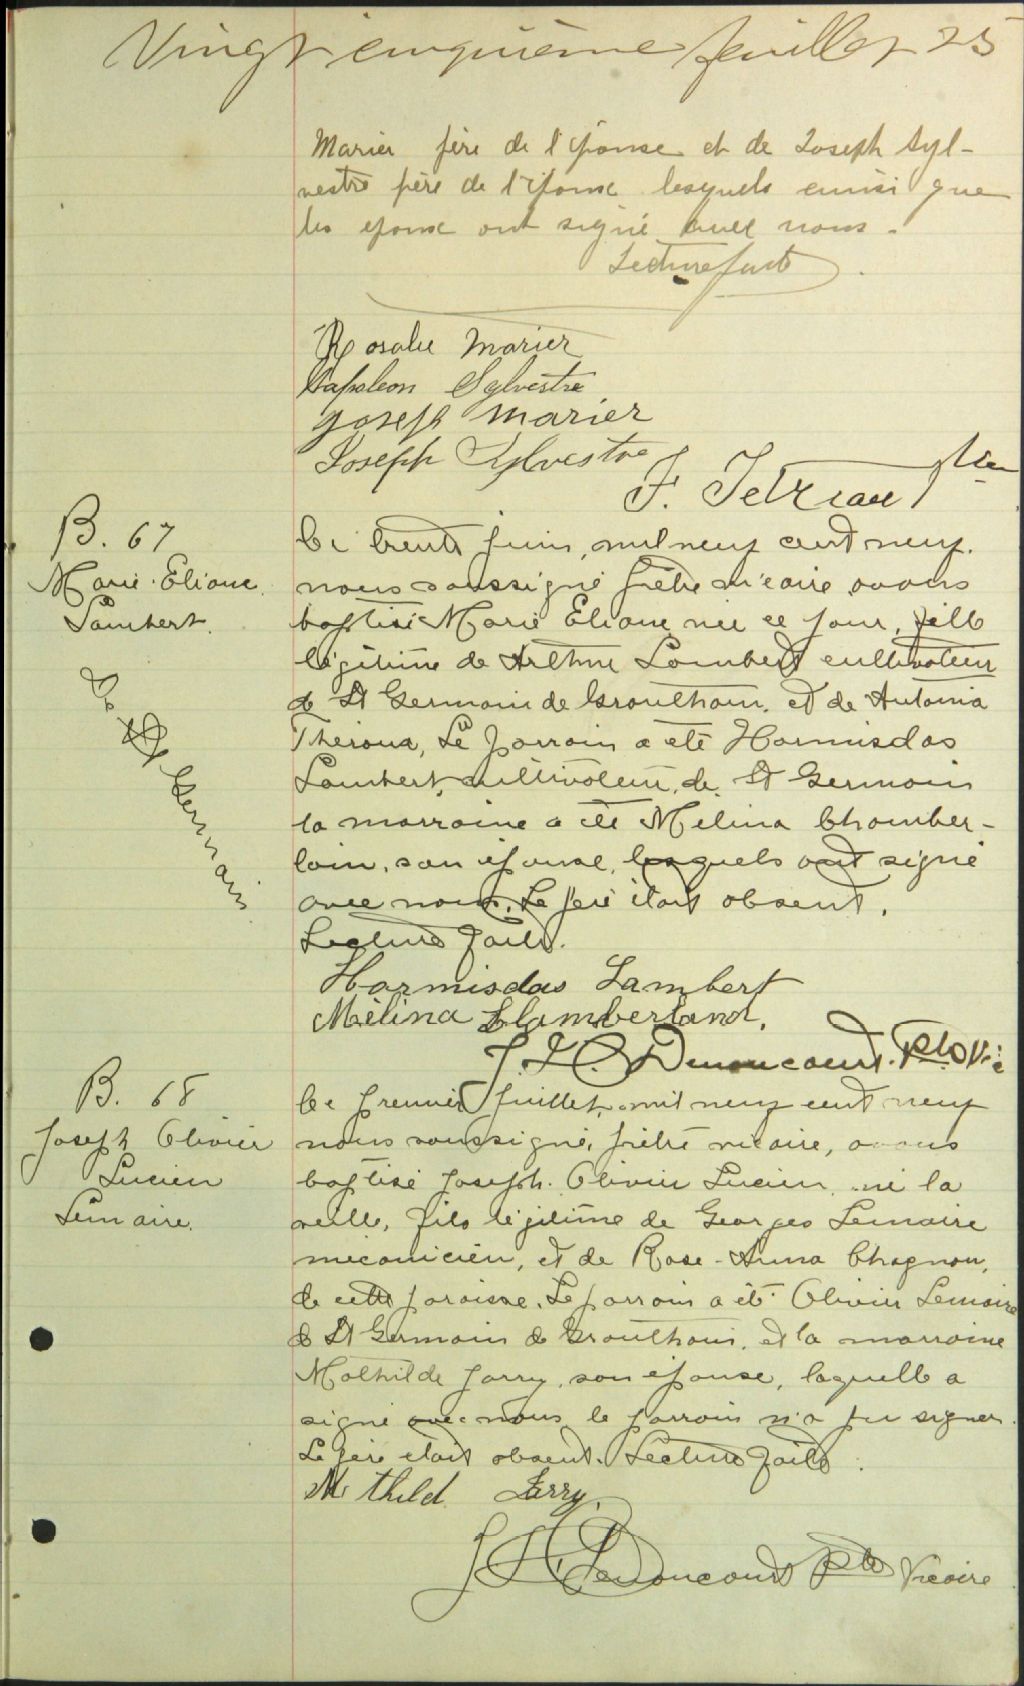 Vingt cinquième feuillet 25
Marier père de l'épouse et de Joseph Syl-
vestre père de l'époux lesquels ainsi que
les époux ont signé avec nous.
Lecture faite
Rosalie Marier
Napoleon Sylvestre
Joseph Marier
Joseph Sylvestre
F. Tétreau Ptre
B. 67
Marie Eliane
Lambert.
de St Germain
Le trente juin, mil neuf cent neuf.
nous soussigné prêtre vicaire avons
baptisé Marie Eliane née ce jour, fille
légitime de Arthur Lambert cultivateur
de St Germain de Grantham, et de Antonia
Theroux, Le parrain a été Hormisdas
Lambert, cultivateur, de St Germain
la marraine a été Mélina Chamber-
lain, son épouse, lesquels ont signé
avec nous. Le père était absent.
Lecture faite.
Hormisdas Lambert
Mélina Chamberland.
J. H. C. Denoncourt. Ptre Vic
B. 68
Joseph Olivier
Lucien
Lemaire.
Le premier Juillet, mil neuf cent neuf
nous soussigné, prêtre vicaire, avons
baptisé Joseph. Olivier Lucien, né la
veille, fils légitime de Georges Lemaire
mécanicien, et de Rose-Anna Chagnon,
de cette paroisse. Le parrain a été Olivier Lemaire
de St Germain de Grantham, et la marraine
Mathilde Jarry, son épouse, laquelle a
signé avec nous le parrain n'a pu signer.
Le père était absent. Lecture faite.
M thild Jarry.
J H C Denoncourt Ptre Vicaire